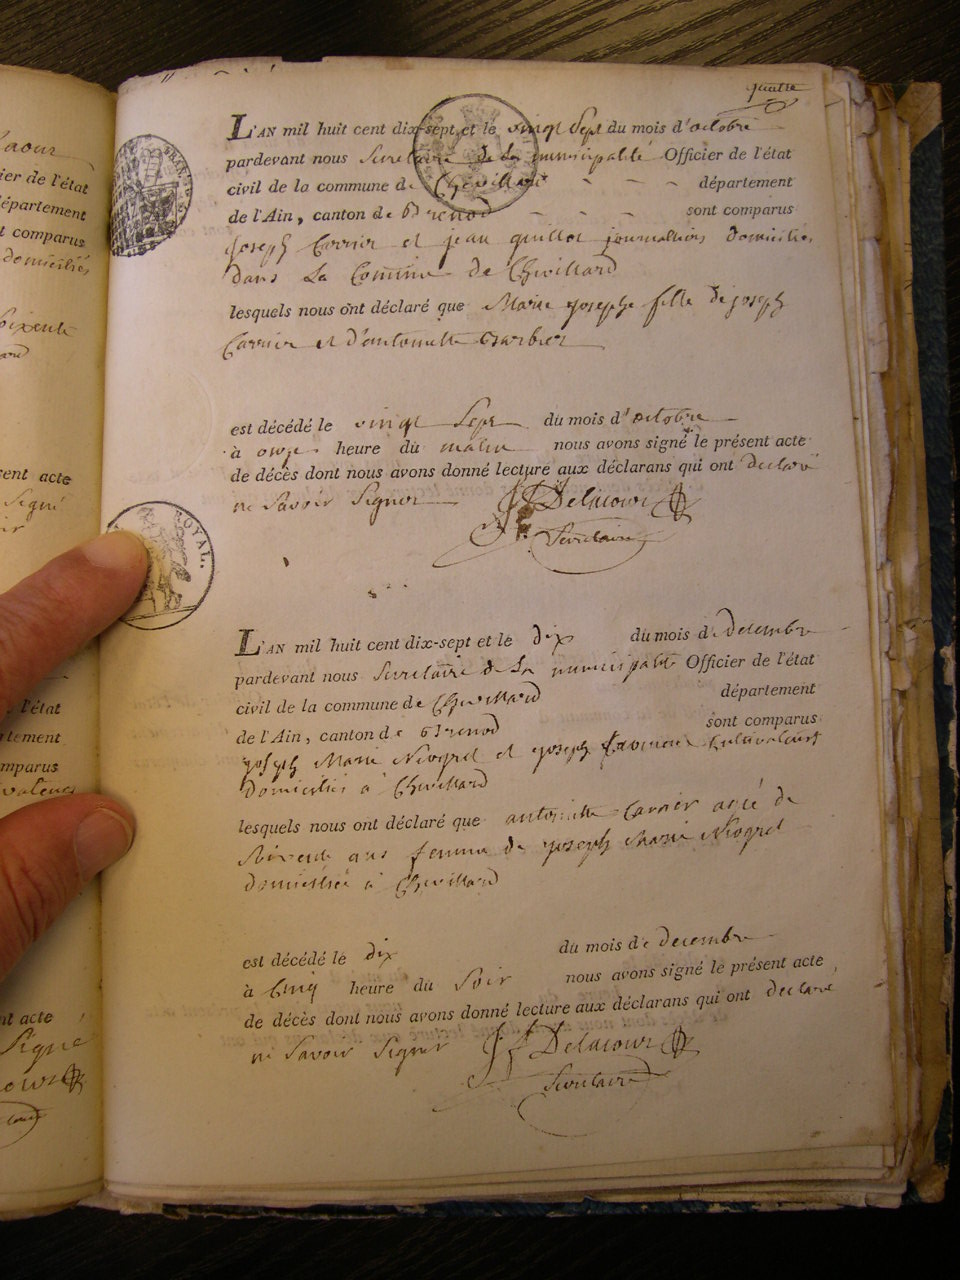 quatre
L'AN mil huit cent dix-sept et le vingt Sept du mois d'octobre
pardevant nous Secretaire de La municipalité Officier de l'état
civil de la commune de Chevillard département
de l'Ain, canton de Brenod sont comparus
Joseph Carrier et jean guillot journalliers domiciliés
dans La Commune de Chevillard
lesquels nous ont déclaré que Marie josephe fille de joseph
Carrier et d'antoinette Barbier
est décédé le vingt Sept du mois d'octobre
à onze heure du matin nous avons signé le présent acte
de décès dont nous avons donné lecture aux déclarans qui ont declaré
ne Savoir Signer Delacour
Secretaire
L'AN mil huit cent dix-sept et le dix du mois de decembre
pardevant nous Secretaire de La municipalité Officier de l'état
civil de la commune de Chevillard département
de l'Ain, canton de Brenod sont comparus
joseph Marie Niogret et joseph Cultivateurs
domiciliés à Chevillard
lesquels nous ont déclaré que antoinette Carrier agée de
ans femme de joseph Marie Niogret
domiciliée à Chevillard
est décédé le dix du mois de decembre
à Cinq heure du Soir nous avons signé le présent acte
de décès dont nous avons donné lecture aux déclarans qui ont declaré
ne Savoir Signer Delacour
Secretaire
ROYAL.
ier de l'état
département
t comparus
domiciliés
sent acte
Signé
l'état
rtement
mparus
nt acte
Signé